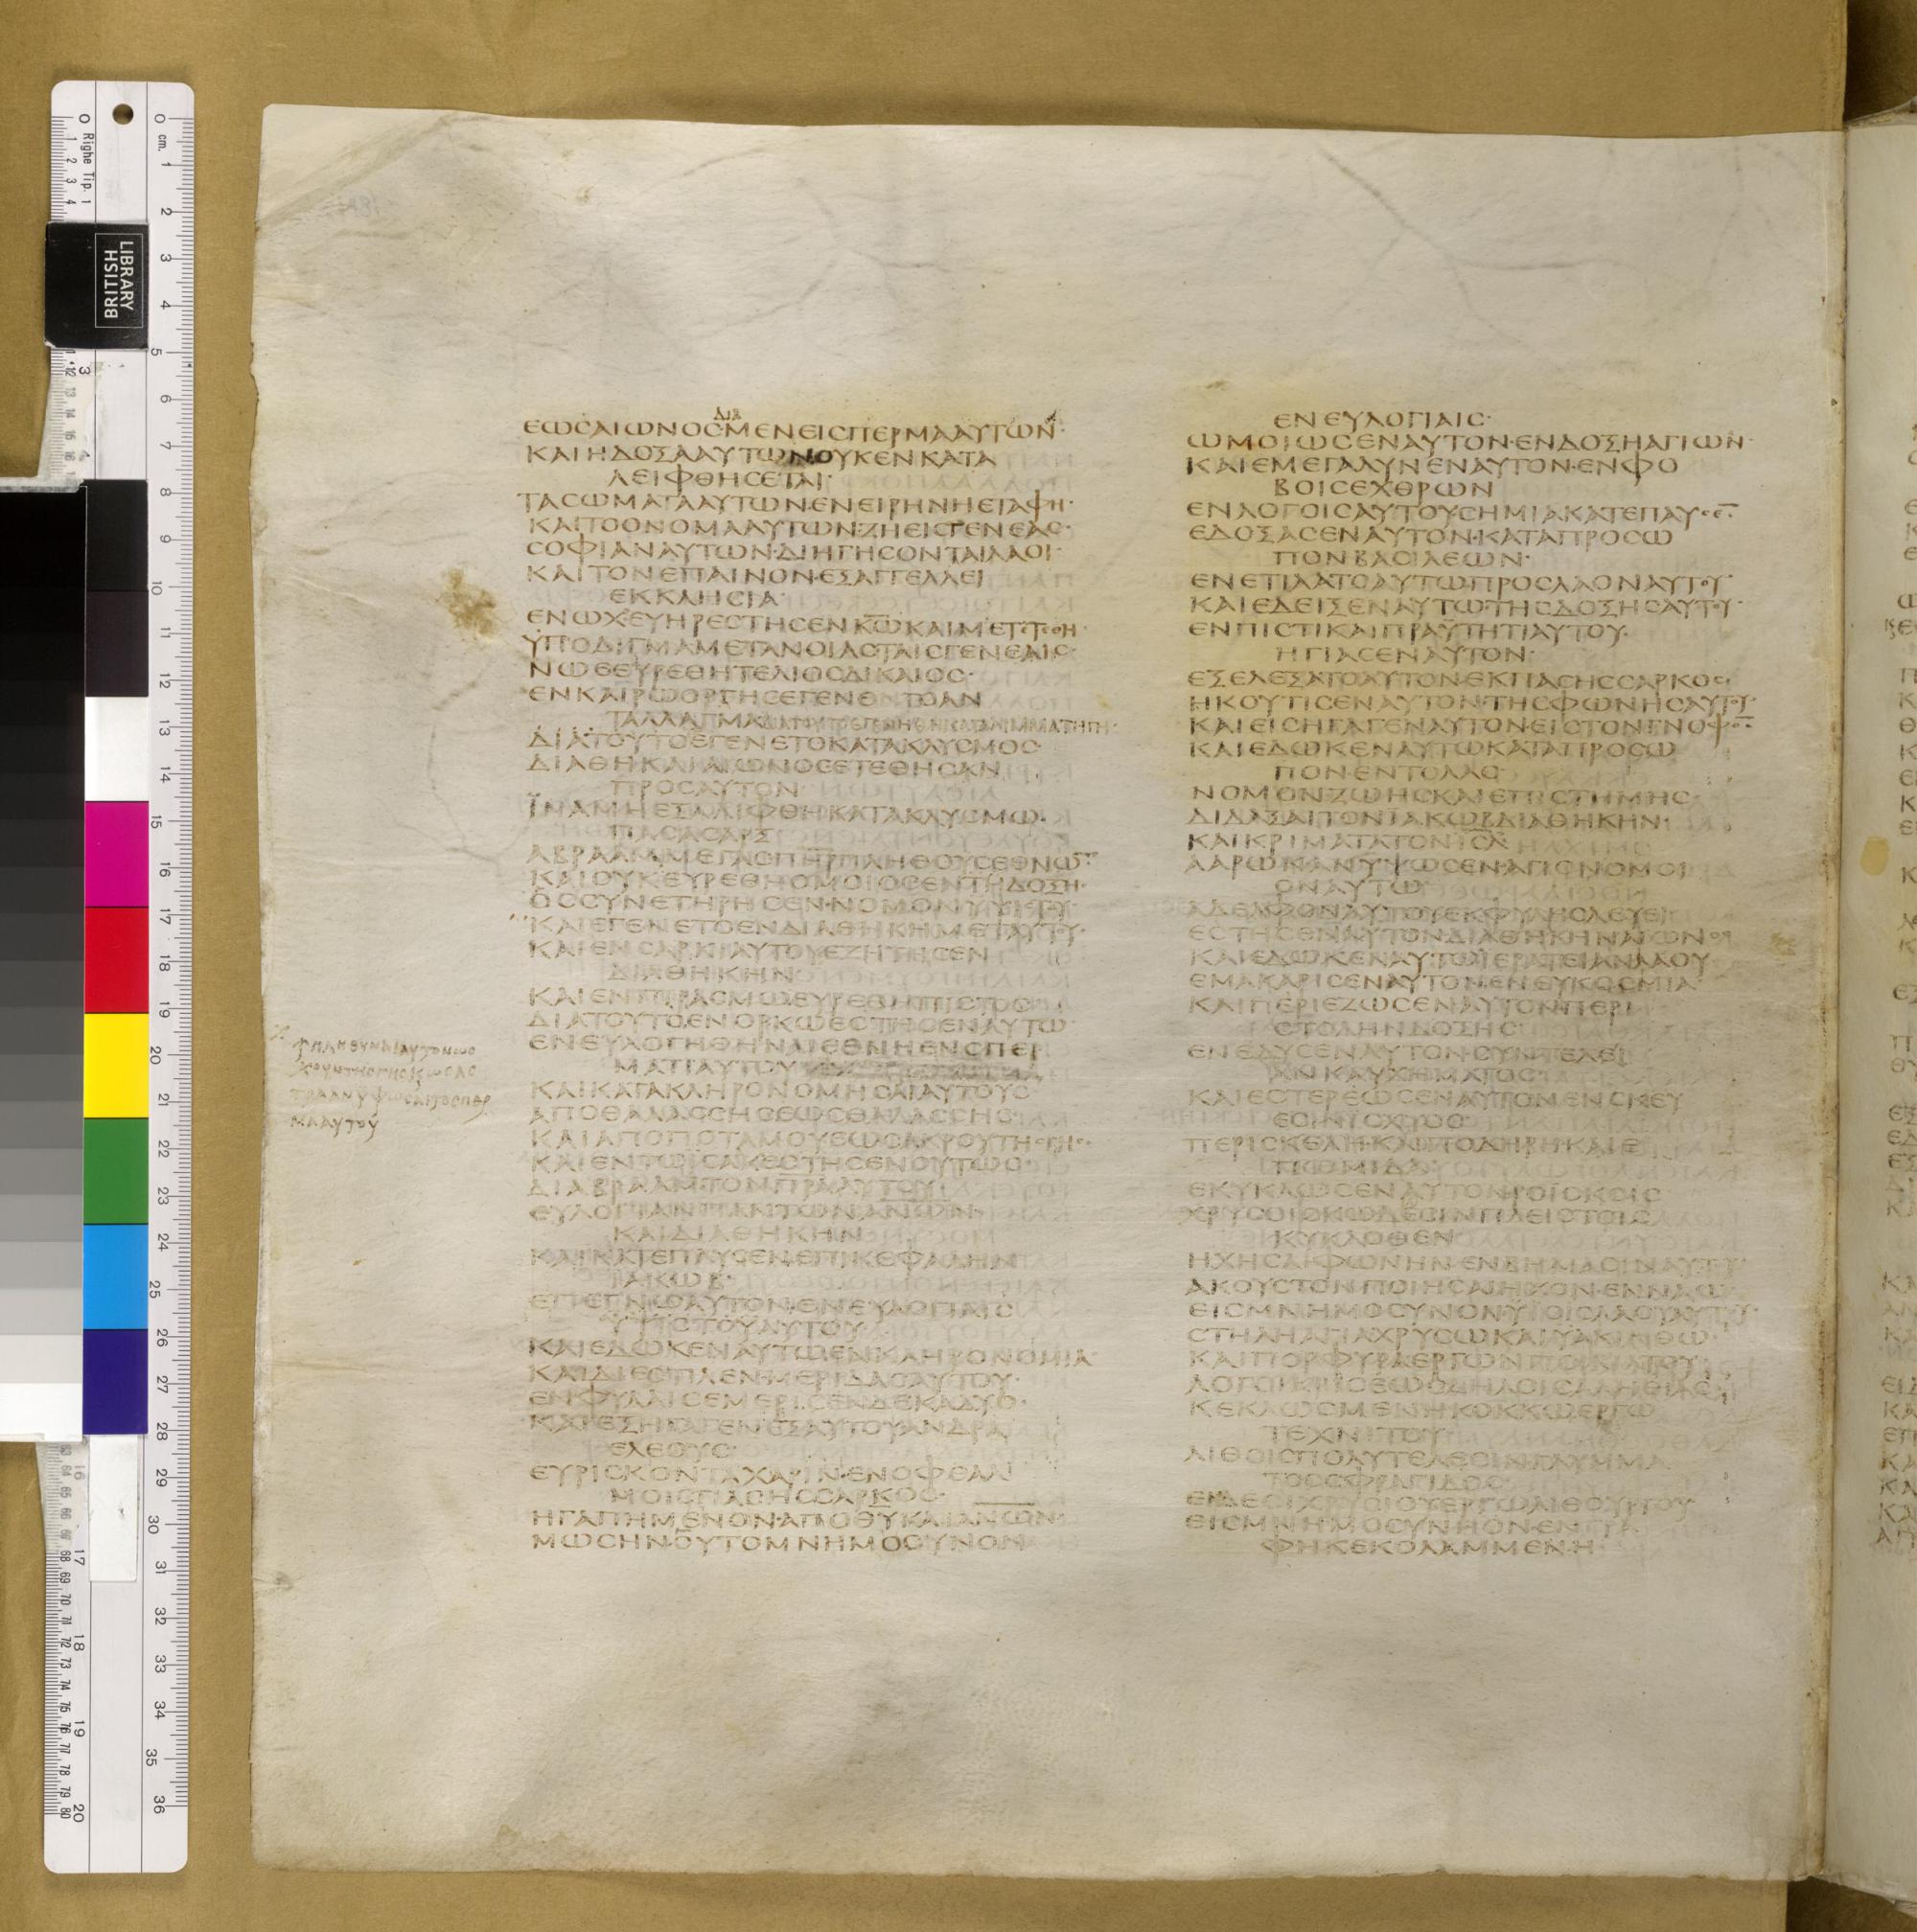 ΔΙΑ
ΕΩCΑΙΩΝΟCΜΕΝΕΙCΠΕΡΜΑΑΥΤΩΝ·
ΚΑΙΗΔΟΞΑΑΥΤΩΝΟΥΚΕΝΚΑΤΑ
ΛΕΙΦΘΗCΕΤΑΙ·
ΤΑCΩΜΑΤΑΑΥΤΩΝΕΝΕΙΡΗΝΗΕΤΑΦΗ·
ΚΑΙΤΟΟΝΟΜΑΑΥΤΩΝΖΗΕΙCΓΕΝΕΑC·
CΟΦΙΑΝΑΥΤΩΝ·ΔΙΗΓΗCΟΝΤΑΙΛΑΟΙ·
ΚΑΙΤΟΝΕΠΑΙΝΟΝ·ΕΞΑΓΓΕΛΛΕΙ
ΕΚΚΛΗCΙΑ·
ΕΝΩΧΕΥΗΡΕCΤΗCΕΝΚΩΚΑΙΜΕΤΕΤΕΘΗ·
ΥΠΟΔΙΓΜΑΜΕΤΑΝΟΙΑCΤΑΙCΓΕΝΕΑΙC·
ΝΩΕΕΥΡΕΘΗΤΕΛΙΟCΔΙΚΑΙΟC·
ΕΝΚΑΙΡΩΟΡΓΗCΕΓΕΝΕΤΟΑΝ
ΤΑΛΛΑΓΜΑ
ΔΙΑΤΟΥΤΟΕΓΕΝΕΤΟΚΑΤΑΚΛΥCΜΟC
ΔΙΑΘΗΚΑΙΑΙΩΝΟCΕΤΕΘΗCΑΝ
ΠΡΟCΑΥΤΟΝ·
ΪΝΑΜΗΕΞΑΛΙΦΘΗΚΑΤΑΚΛΥCΜΩ·
ΠΑCΑCΑΡΞ
ΑΒΡΑΑΜΜΕΓΑCΠΗΡΠΛΗΘΟΥCΕΘΝΩΝ
ΚΑΙΟΥΚΕΥΡΕΘΗΟΜΟΙΟCΕΝΤΗΔΟΞΗ·
ΟCCΥΝΕΤΗΡΗCΕΝ·ΝΟΜΟΝΥΨΙCΤΟΥ·
ΚΑΙΕΓΕΝΕΤΟΕΝΔΙΑΘΗΚΗΜΕΤΑΥΤΟΥ·
ΚΑΙΕΝCΑΡΚΙΑΥΤΟΥΕΖΗΤΗCΕΝ
ΔΙΑΘΗΚΗΝ·
ΚΑΙΕΝΠΙΡΑCΜΩΕΥΡΕΘΗΠΙCΤΟC·
ΔΙΑΤΟΥΤΟΕΝΟΡΚΩΕCΤΗCΕΝΑΥΤΩ
ΕΝΕΥΛΟΓΗΘΗΝΑΙΕΘΝΗΕΝCΠΕΡ
ΜΑΤΙΑΥΤΟΥ
ΚΑΙΚΑΤΑΚΛΗΡΟΝΟΜΗCΑΙΑΥΤΟΥC·
ΑΠΟΘΑΛΑCCΗCΕΩCΘΑΛΑCCΗC·
ΚΑΙΑΠΟΠΟΤΑΜΟΥΕΩCΑΚΡΟΥΤΗCΓΗC·
ΚΑΙΕΝΤΩΪCΑΚΕCΤΗCΕΝΟΥΤΩC·
ΔΙΑΒΡΑΑΜΤΟΝΠΡΑΑΥΤΟΥ
ΕΥΛΟΓΙΑΝΠΑΝΤΩΝΑΝΩΝ·
ΚΑΙΔΙΑΘΗΚΗΝ
ΚΑΙΚΑΤΕΠΑΥCΕΝΕΠΙΚΕΦΑΛΗΝ
ΪΑΚΩΒ·
ΕΠΕΓΝΩΑΥΤΟΝΕΝΕΥΛΟΓΙΑΙC
ΥΨΙCΤΟΥΑΥΤΟΥ
ΚΑΙΕΔΩΚΕΝΑΥΤΩΕΝΚΛΗΡΟΝΟΜΙΑ
ΚΑΙΔΙΕCΤΙΛΕΝΜΕΡΙΔΑCΑΥΤΟΥ·
ΕΝΦΥΛΑΙCΕΜΕΡΙCΕΝΔΕΚΑΔΥΟ·
ΚΑΙΕΞΗΓΑΓΕΝΕΞΑΥΤΟΥΑΝΔΡΑ
ΕΛΕΟΥC·
ΕΥΡΙCΚΟΝΤΑΧΑΡΙΝ·ΕΝΟΦΘΑΛ
ΜΟΙCΠΑCΗCCΑΡΚΟC·
ΗΓΑΠΗΜΕΝΟΝ·ΑΠΟΘΥΚΑΙΑΝΩΝ·
ΜΩCΗΝΟΥΤΟΜΝΗΜΟCΥΝΟΝ
ΕΝΕΥΛΟΓΙΑΙC·
ΩΜΟΙΩCΕΝΑΥΤΟΝ·ΕΝΔΟΞΗΑΓΙΩΝ·
ΚΑΙΕΜΕΓΑΛΥΝΕΝΑΥΤΟΝ·ΕΝΦΟ
ΒΟΙCΕΧΘΡΩΝ
ΕΝΛΟΓΟΙCΑΥΤΟΥCΗΜΙΑΚΑΤΕΠΑΥCΕ
ΕΔΟΞΑCΕΝΑΥΤΟΝ·ΚΑΤΑΠΡΟCΩ
ΠΟΝΒΑCΙΛΕΩΝ·
ΕΝΕΤΙΛΑΤΟΑΥΤΩΠΡΟCΛΑΟΝΑΥΤΟΥ·
ΚΑΙΕΔΕΙΞΕΝΑΥΤΩΤΗCΔΟΞΗCΑΥΤΟΥ·
ΕΝΠΙCΤΙΚΑΙΠΡΑΫΤΗΤΙΑΥΤΟΥ·
ΗΓΙΑCΕΝΑΥΤΟΝ·
ΕΞΕΛΕΞΑΤΟΑΥΤΟΝ·ΕΚΠΑCΗCCΑΡΚΟC
ΗΚΟΥΤΙCΕΝΑΥΤΟΝ·ΤΗCΦΩΝΗCΑΥΤΟΥ·
ΚΑΙΕΙCΗΓΑΓΕΝΑΥΤΟΝΕΙCΤΟΝΓΝΟΦΟΝ
ΚΑΙΕΔΩΚΕΝΑΥΤΩΚΑΤΑΠΡΟCΩ
ΠΟΝ·ΕΝΤΟΛΑC·
ΝΟΜΟΝΖΩΗCΚΑΙΕΠΙCΤΗΜΗC·
ΔΙΔΑΞΑΙΤΟΝΙΑΚΩΒΔΙΑΘΗΚΗΝ·
ΚΑΙΚΡΙΜΑΤΑΤΟΝΙCΛ
ΑΑΡΩΝΑΝΥΨΩCΕΝΑΓΙΟΝΟΜΟΙ
ΟΝΑΥΤΩ
ΑΔΕΛΦΟΝΑΥΤΟΥΕΚΦΥΛΗCΛΕΥΕΙ
ΕCΤΗCΕΝΑΥΤΟΝΔΙΑΘΗΚΗΝΑΙΩΝΟC
ΚΑΙΕΔΩΚΕΝΑΥΤΩΙΕΡΑΤΕΙΑΝΛΑΟΥ
ΕΜΑΚΑΡΙCΕΝΑΥΤΟΝΕΝΕΥΚΟCΜΙΑ·
ΚΑΙΠΕΡΙΕΖΩCΕΝΑΥΤΟΝΠΕΡΙ
CΤΟΛΗΝΔΟΞΗC·
ΕΝΕΔΥCΕΝΑΥΤΟΝ·CΥΝΤΕΛΕΙ
ΑΝΚΑΥΧΗΜΑΤΟC·
ΚΑΙΕCΤΕΡΕΩCΕΝΑΥΤΟΝΕΝCΚΕΥ
ΕCΙΝΙCΧΥΟC·
ΠΕΡΙCΚΕΛΗ·ΚΑΙΠΟΔΗΡΗ·ΚΑΙΕ
ΠΩΜΙΔΑ·
ΕΚΥΚΛΩCΕΝΑΥΤΟΝΡΟΪCΚΟΙC
ΧΡΥCΟΙCΚΩΔΩCΙΝΠΛΕΙCΤΟΙC
ΚΥΚΛΟΘΕΝ
ΗΧΗCΑΙΦΩΝΗΝ·ΕΝΒΗΜΑCΙΝΑΥΤΟΥ
ΑΚΟΥCΤΟΝΠΟΙΗCΑΙΗΧΟΝ·ΕΝΝΑΩ·
ΕΙCΜΝΗΜΟCΥΝΟΝΥΪΟΙCΛΑΟΥΑΥΤΟΥ·
CΤΗΛΗΑΓΙΑΧΡΥCΩΚΑΙΥΑΚΙΝΘΩ·
ΚΑΙΠΟΡΦΥΡΑΕΡΓΩΝΠΟΙΚΙΛΤΟΥ·
ΚΕΚΛΩCΜΕΝΗΚΟΚΚΩΕΡΓΩ
ΤΕΧΝΙΤΟΥ
ΛΙΘΟΙCΠΟΛΥΤΕΛΕCΙΝΓΛΥΜΜΑ
ΤΟCCΦΡΑΓΙΔΟC·
ΕΝΔΕCΙΧΡΥCΙΟΥΕΡΓΩΛΙΘΟΥΡΓΟΥ·
ΕΙCΜΝΗΜΟCΥΝΗΟΝ·ΕΝΓΡΑ
ΦΗΚΕΚΟΛΑΜΜΕΝΗ
BRITISH
LIBRARY
cm.
Righe Tip. 1